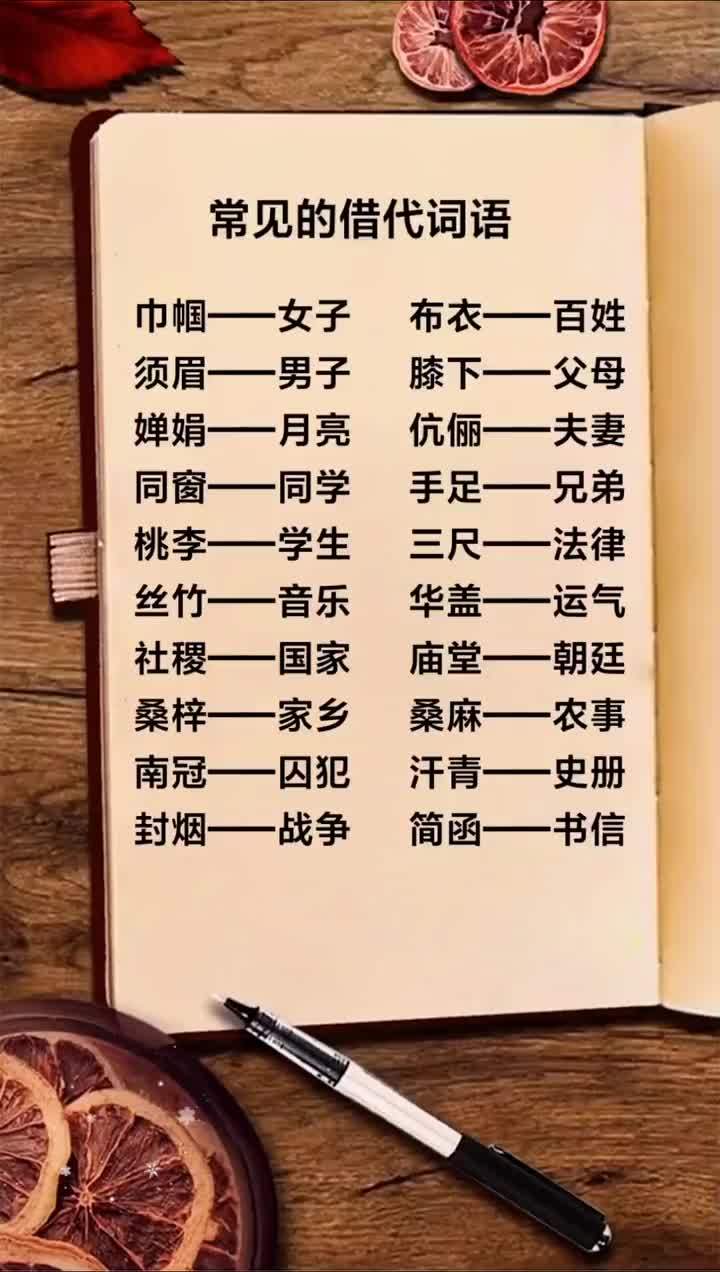 常见的借代词语
巾帼——女子 布衣——百姓
须眉——男子 膝下——父母
婵娟——月亮 伉俪——夫妻
同窗——同学 手足——兄弟
桃李——学生 三尺——法律
丝竹——音乐 华盖——运气
社稷——国家 庙堂——朝廷
桑梓——家乡 桑麻——农事
南冠——囚犯 汗青——史册
封烟——战争 简函——书信